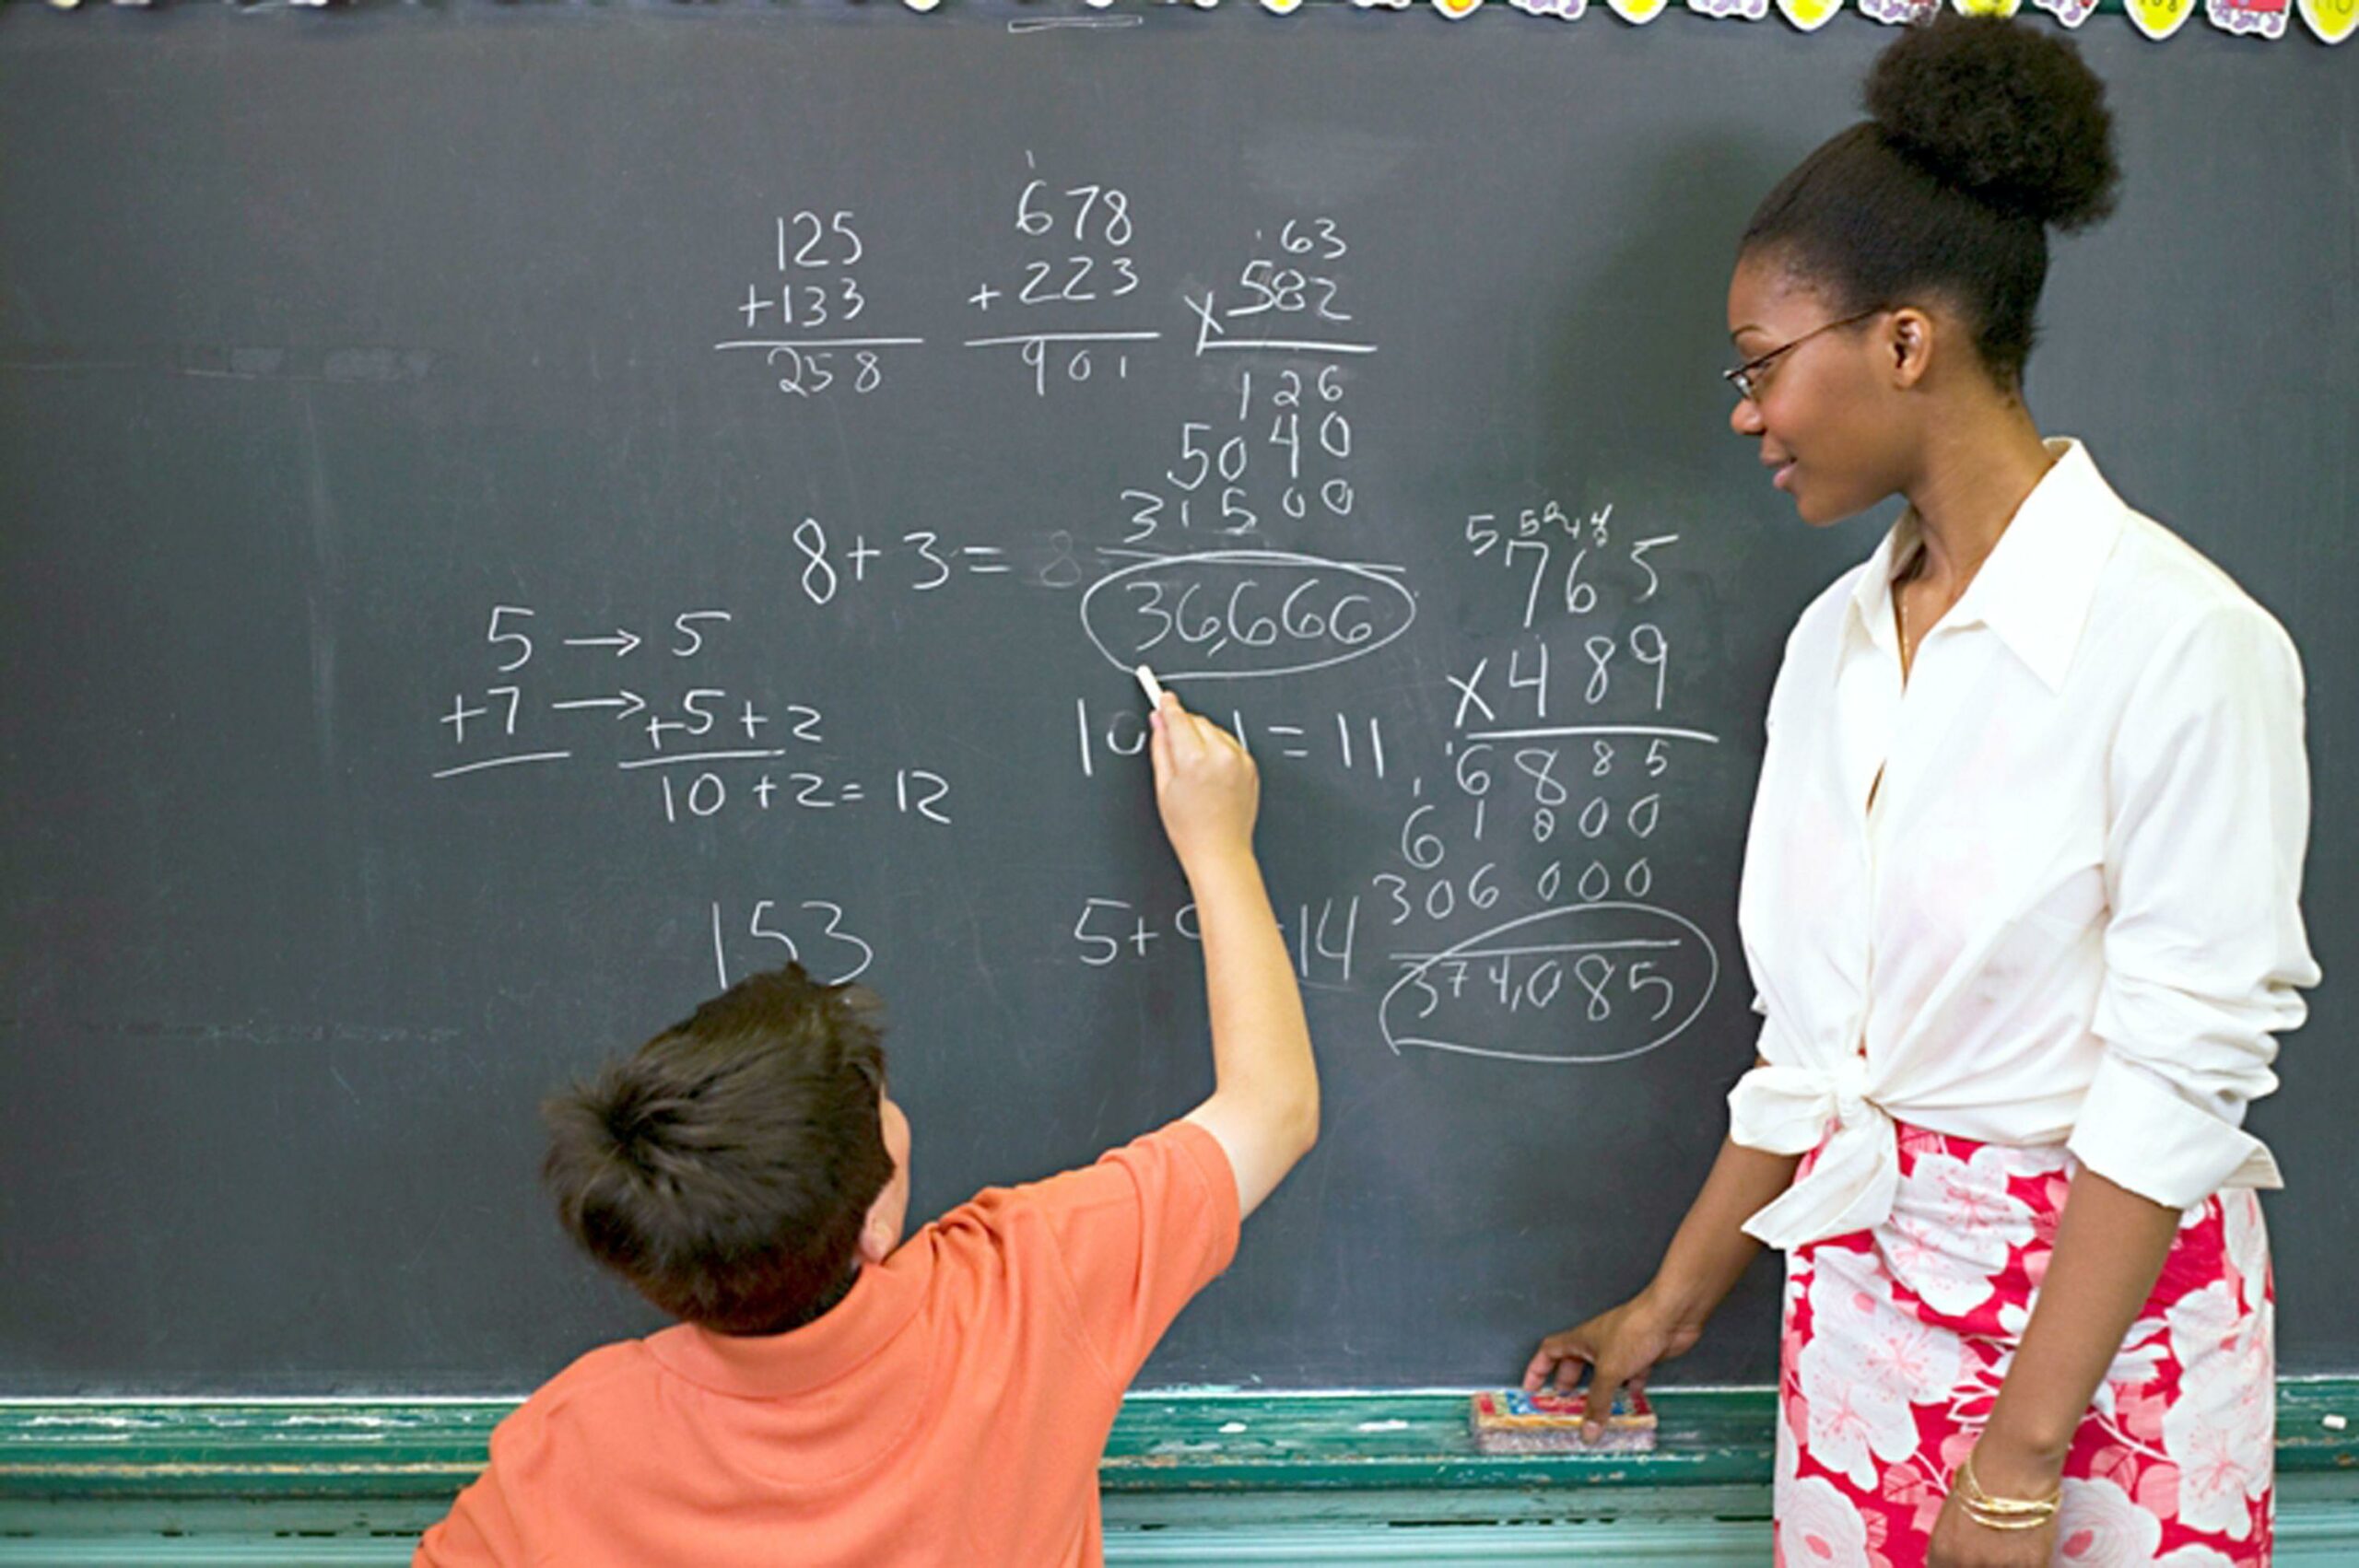 125
+133
258
1
678
+223
901
63
x 582
126
5040
31500
36,666
8+3=
5 → 5
+7 → +5+2
10+2=12
11
153
5+
14
765
x 489
6885
61800
306000
374,085